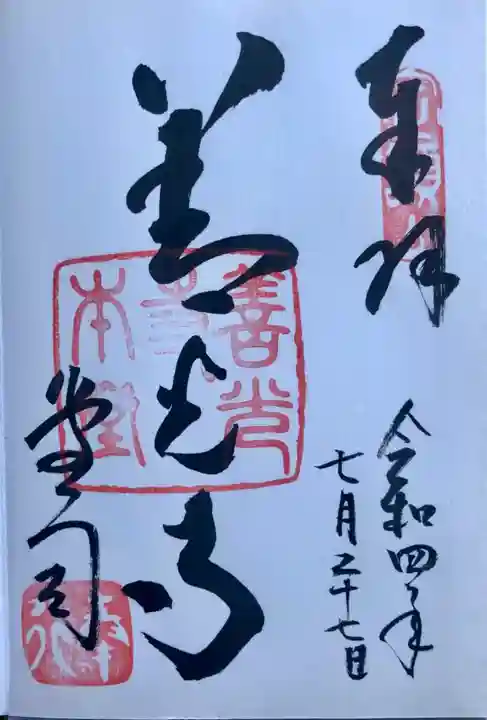 奉拝
令和四年
七月二十七日
善光寺
堂司
善光
寺
本堂